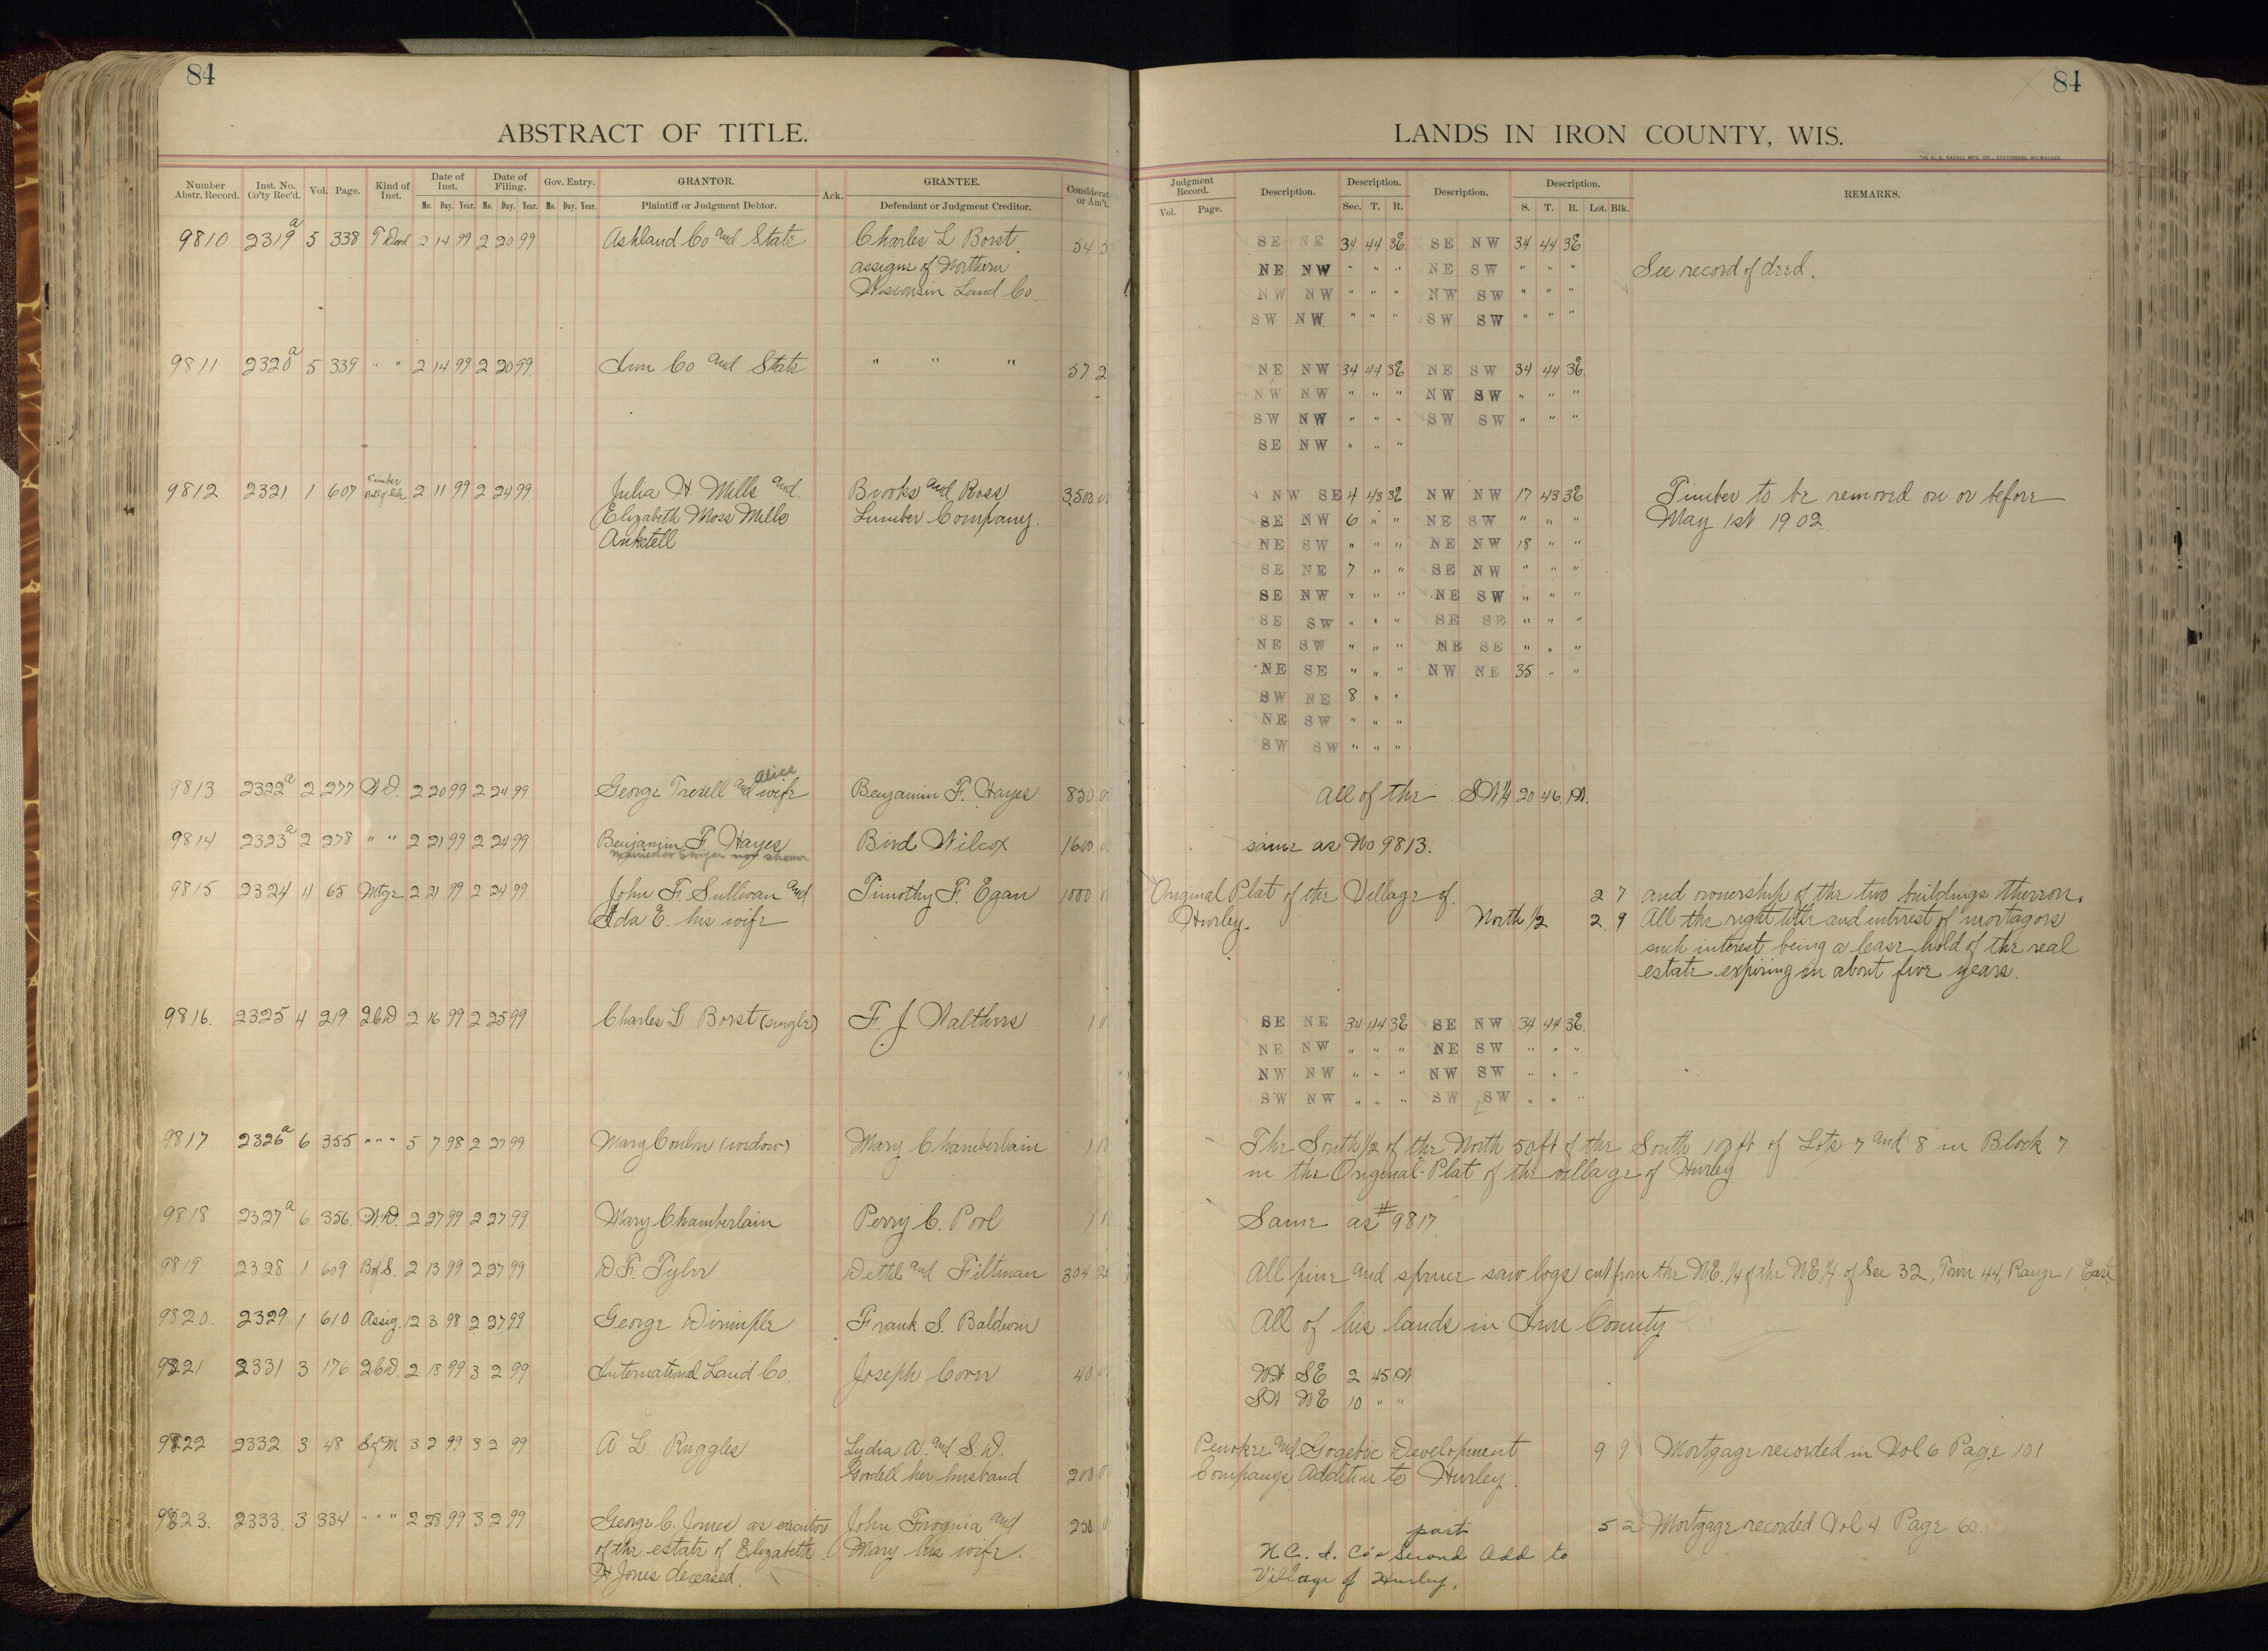 84
ABSTRACT OF TITLE.
Number Abstr. Record. Inst. No. Co'ty Rec'd. Vol. Page. Kind of Inst. Date of Inst. Mo. Day. Year. Date of Filing. Mo. Day. Year. Gov. Entry. Mo. Day. Year. GRANTOR. Plaintiff or Judgment Debtor. Ack. GRANTEE. Defendant or Judgment Creditor. Considerat or Am't.
9810 2319a 5 338 T Deed 2 14 99 2 20 99 Ashland Co and State Charles L Borst 54 5
assignee of Northern
Wisconsin Land Co.
9811 2320a 5 339 " " 2 14 99 2 20 99 Iron Co and State " " " 57 2
9812 2321 1 607 Timber Bill of Sale 2 11 99 2 24 99 Julia H Mills and Brooks and Ross 3,500 00
Elizabeth Moss Mills Lumber Company.
Anketell
9813 2322a 2 277 W.D. 2 20 99 2 24 99 George Trexell and Alice wife Benjamin F. Hayes 830 0
9814 2323a 2 278 " " 2 21 99 2 24 99 Benjamin F Hayes Bird Wilcox 1600 0
married or single not shown
9815 2324 4 65 Mtge 2 21 99 2 24 99 John F. Sullivan and Timothy F. Egan 1000 0
Ida E. his wife
9816. 2325 4 219 2CD 2 16 99 2 25 99 Charles L Borst (single) F. J Walthers 1 0
9817 2326a 6 355 " " " 5 7 98 2 27 99 Mary Conlon (widow) Mary Chamberlain 1 0
9818 2327a 6 356. W.D. 2 27 99 2 27 99 Mary Chamberlain Perry C. Pool 1
9819 2328 1 609 B of S. 2 13 99 2 27 99 D F. Tyler and Filtman 304
9820. 2329 1 610 Assig. 12 3 98 2 27 99 George Dimmple Frank S. Baldwin
9821 2331 3 176 2CD. 2 18 99 3 2 99 International Land Co. Joseph Cover 40 0
9822 2332 3 48 S of M 3 2 99 3 2 99 A L Ruggles Lydia A. and S. D.
Goodell her husband 200 0
9823. 2333. 3 334 " " " 2 28 99 3 2 99 George C. Jones as executor John Frognia and 250 0
of the estate of Elizabeth Mary his wife.
H Jones deceased.
84
LANDS IN IRON COUNTY, WIS.
Judgment Record. Vol. Page. Description. Description. Sec. T. R. Description. Description. S. T. R. Lot. Blk. REMARKS.
SE NE 34 44 3E SE NW 34 44 3E
NE NW " " " NE SW " " " See record of deed.
NW NW " " " NW SW " " "
SW NW " " " SW SW " " "
NE NW 34 44 3E NE SW 34 44 3E
NW NW " " " NW SW " " "
SW NW " " " SW SW " " "
SE NW " " "
NW SE 4 43 3E NW NW 17 43 3E Timber to be removed on or before
SE NW 6 " " NE SW " " " May 1st 1902.
NE SW " " " NE NW 18 " "
SE NE 7 " " SE NW " " "
SE NW " " " NE SW " " "
SE SW " " " SE SE " " "
NE SW " " " NE SE " " "
NE SE " " " NW NE 35 " "
SW NE 8 " "
NE SW " " "
SW SW " " "
All of the SW1/4 20 46 1W.
same as No 9813.
Original Plat of the Village of 2 7 and ownership of the two buildings thereon.
Hurley. North 1/2 2 9 All the right title and interest of mortagors
such interest being a lease hold of the real
estate expiring in about five years.
SE NE 34 44 3E SE NW 34 44 3E.
NE NW " " " NE SW " " "
NW NW " " " NW SW " " "
SW NW " " " SW SW " " "
The South 1/2 of the North 50ft of the South 100 ft. of Lots 7 and 8 in Block 7
in the Original-Plat of the village of Hurley
Same as #9817
All pine and spruce saw logs cut from the NE 1/4 of the NE 1/4 of Sec 32, Town 44, Range 1 East
All of his lands in Iron County
NW SE 2 45 1W
SW NE 10 " "
Penokee and Gogebic Development 9 9 Mortgage recorded in Vol 6 Page 101
Companys Addition to Hurley.
part 5 2 Mortgage recorded Vol 4 Page 60.
N.C. I. Co's Second Add to
Village of Hurley.